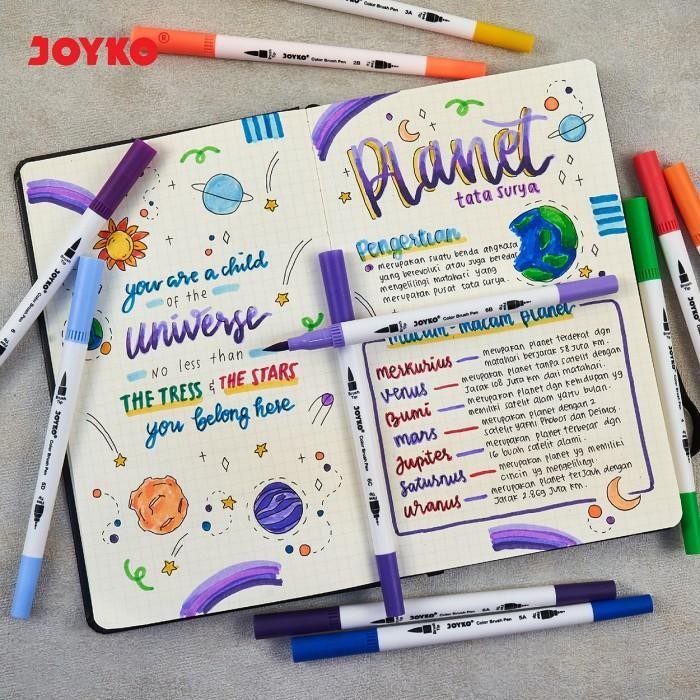 JOYKO®
JOYKO Color Brush Pen 3A
JOYKO Color Brush Pen 2B
Planet
tata surya
Pengertian
merupakan suatu benda angkasa
yang berevolusi atau juga beredar
mengelilingi matahari yang
merupakan pusat tata surya.
Macam-macam planet
merkurius — merupakan planet terdekat dgn
matahari berjarak 58 juta km.
venus — merupakan planet tanpa satelit dengan
jarak 108 juta km dari matahari.
Bumi — merupakan planet dgn kehidupan yg
memiliki satelit alam yaitu bulan.
mars — merupakan planet dengan 2
satelit yaitu Phobos dan Deimos.
Jupiter — merupakan planet terbesar dgn
16 buah satelit alami.
saturnus — merupakan planet yg memiliki
cincin yg mengelilingi.
uranus — merupakan planet terjauh dengan
jarak 2.869 juta km.
you are a child
of the
universe
no less than
THE TRESS & THE STARS
you belong here
JOYKO Color Brush Pen 6B
Brush Tip
JOYKO Color Brush Pen 5D
JOYKO Color Brush Pen 6C
JOYKO Color Brush Pen 6A
JOYKO Color Brush Pen 5A